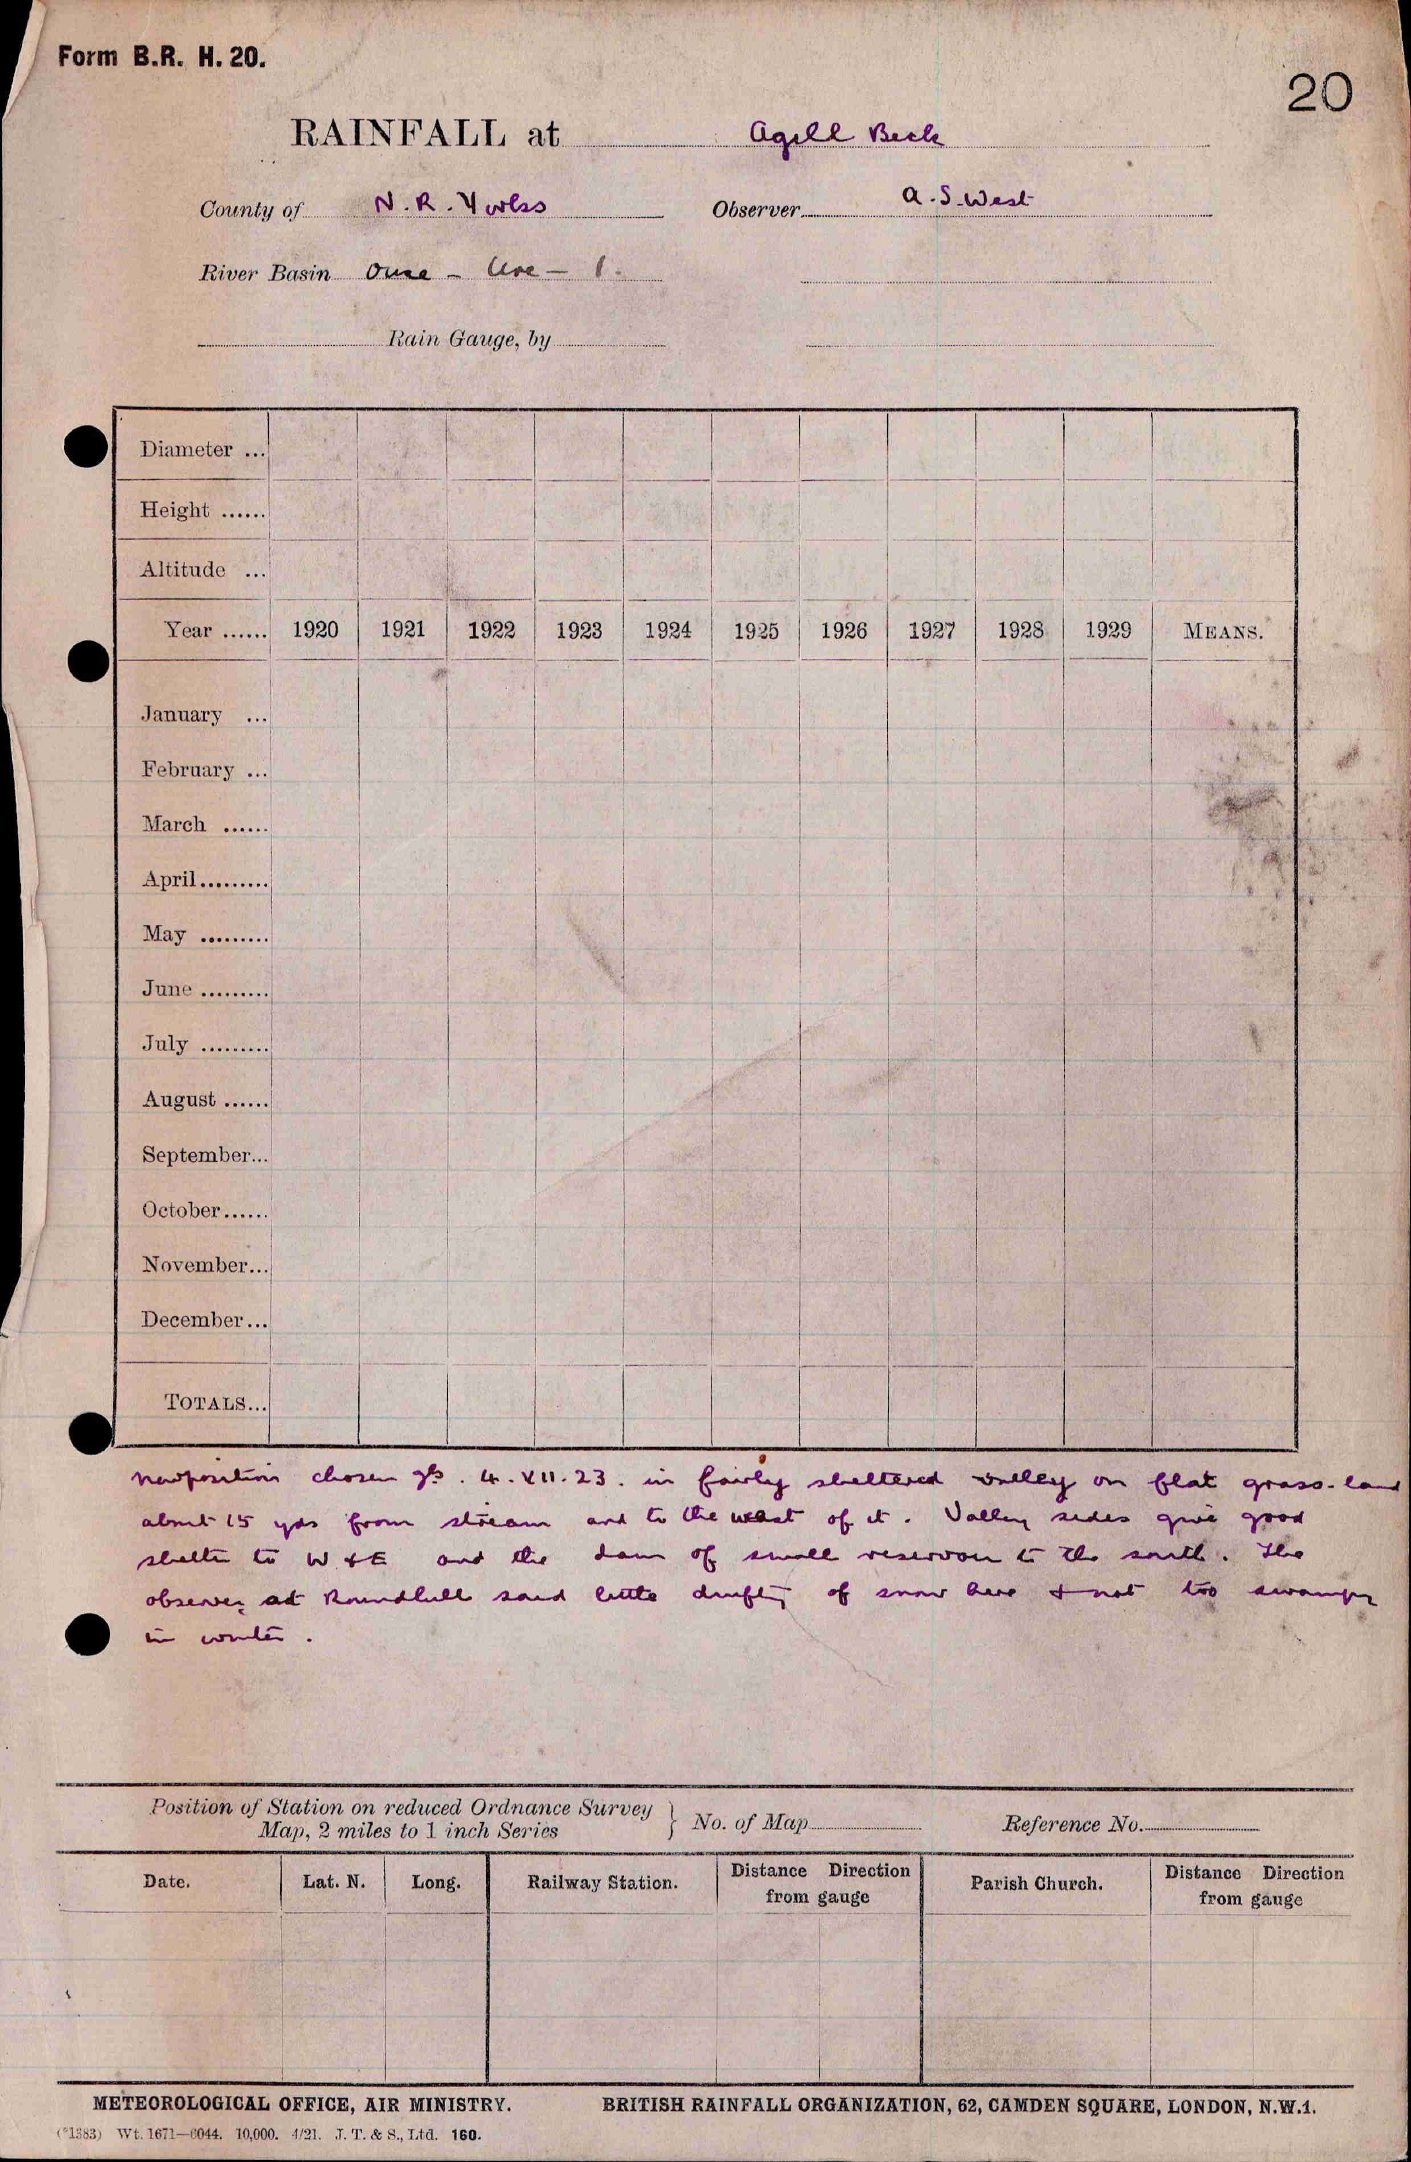 Form B.R. H. 20.
20
RAINFALL at Agill Beck
County of N. R. Yorks Observer A. S. West
River Basin Ouse - Ure - 1.
Rain Gauge, by
Diameter ...
Height ......
Altitude ...
Year ...... 1920 1921 1922 1923 1924 1925 1926 1927 1928 1929 MEANS.
January ...
February ...
March ......
April.........
May .........
June .........
July .........
August ......
September...
October......
November...
December...
TOTALS...
New position chosen 4.VII.23. in fairly sheltered valley on flat grass-land
about 15 yds from stream and to the west of it. Valley sides give good
shelter to W & E and the dam of small reservoir to the south. The
observer at Roundhill said little drifting of snow here & not too swampy
in winter.
Position of Station on reduced Ordnance Survey
Map, 2 miles to 1 inch Series } No. of Map Reference No.
Date. Lat. N. Long. Railway Station. Distance Direction from gauge Parish Church. Distance Direction from gauge
METEOROLOGICAL OFFICE, AIR MINISTRY. BRITISH RAINFALL ORGANIZATION, 62, CAMDEN SQUARE, LONDON, N.W.1.
(*1383) Wt. 1671—6044. 10,000. 4/21. J. T. & S., Ltd. 160.